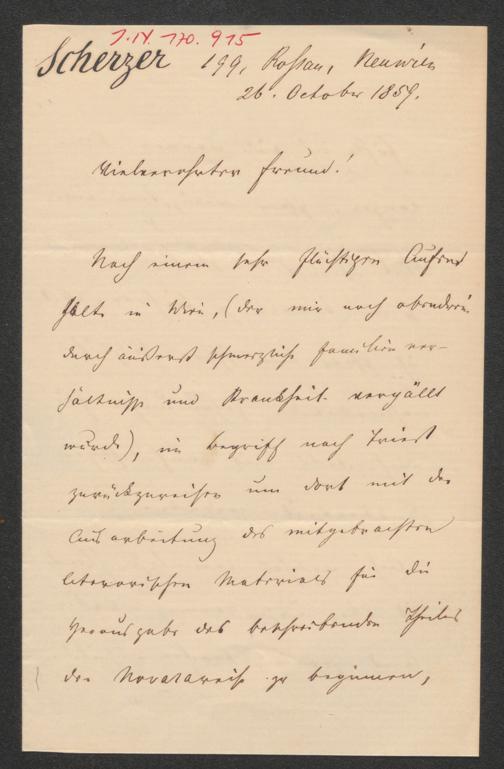 J.N. 170.915
Scherzer
199, Rossau, Neuwien
26. October 1859.
Vielverehrter Freund!
Nach einem sehr flüchtigen Aufent
halte in Wien, (der mir noch obendrein
durch äußerst schmerzliche Familien ver-
hältnisse und Krankheit vergällt
wurde), im Begriff nach Triest
zurückzureisen um dort mit der
Ausarbeitung des mitgebrachten
literarischen Materials für die
Herausgabe des beschreibenden Theiles
der Novarareise zu beginnen,